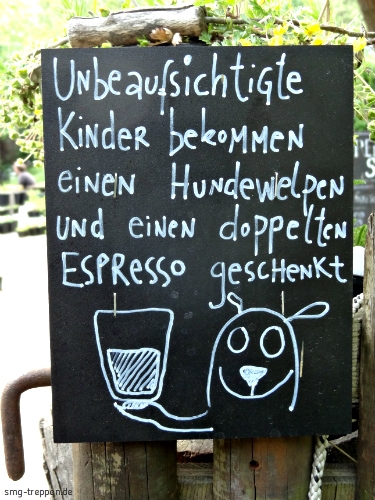 Unbeaufsichtigte
Kinder bekommen
einen Hundewelpen
und einen doppelten
Espresso geschenkt
smg-treppen.de